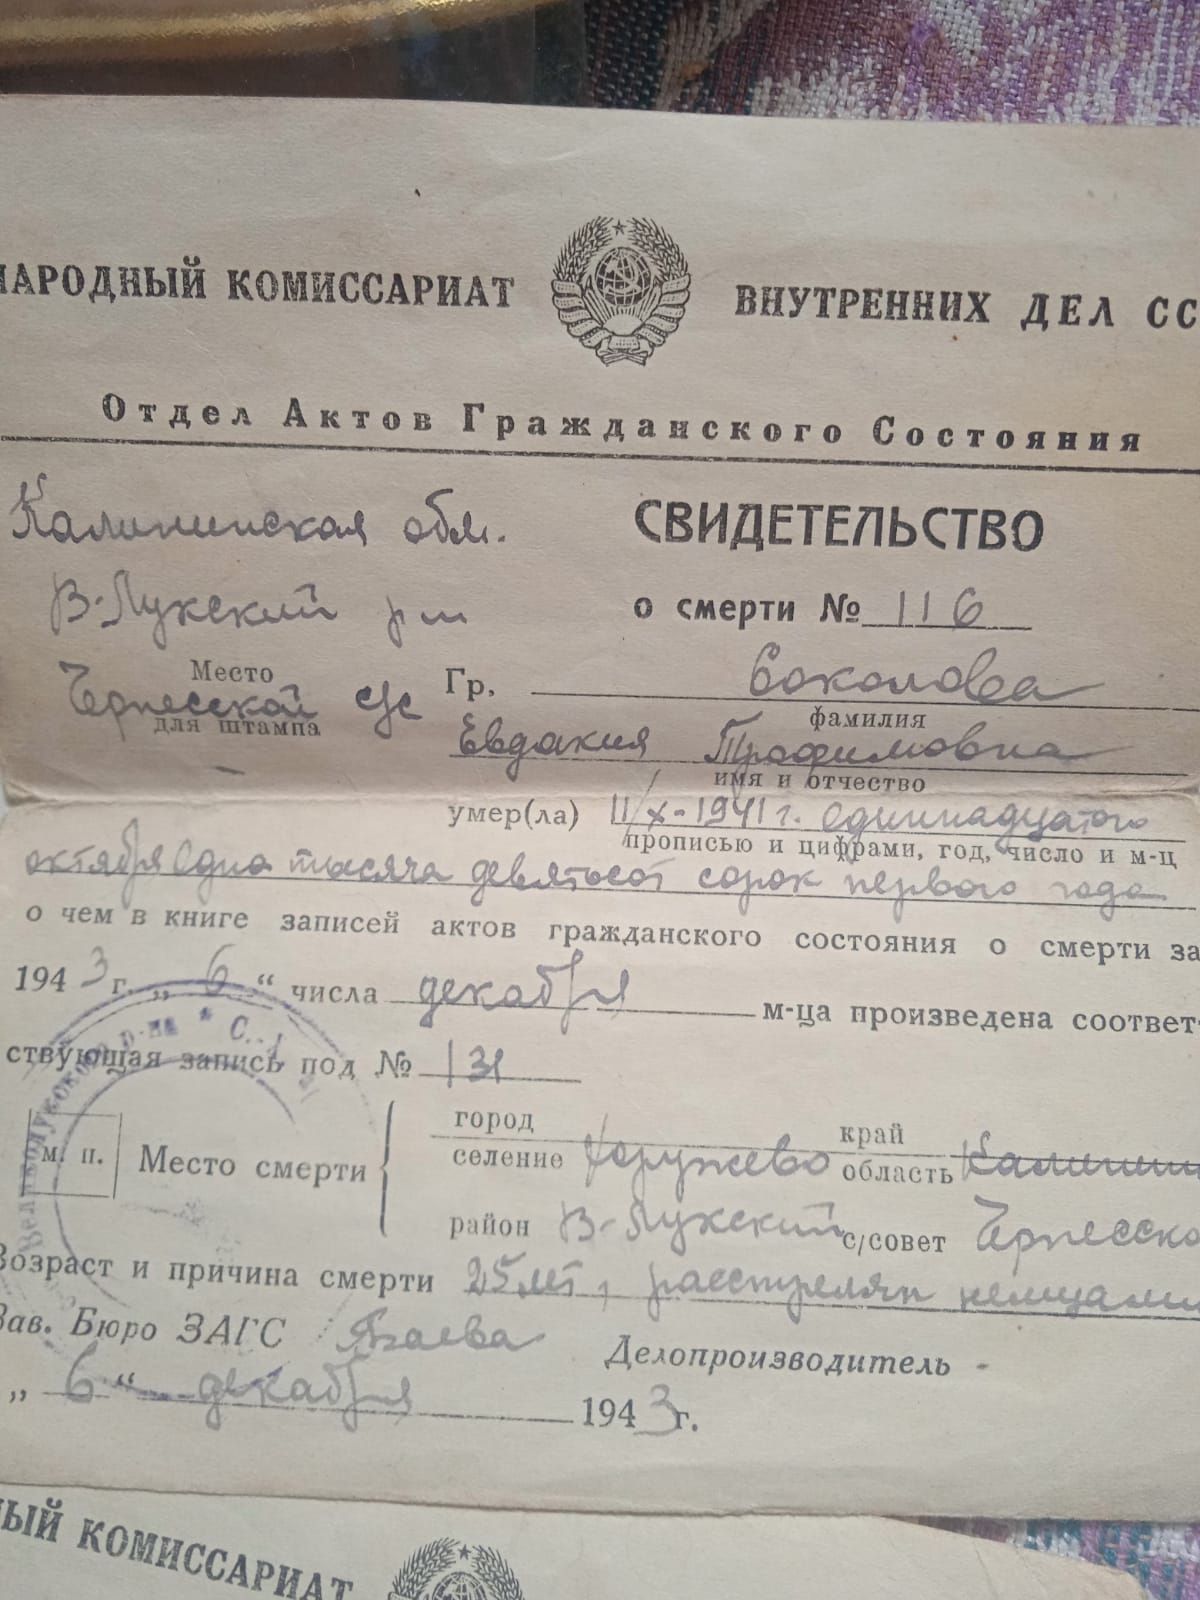 НАРОДНЫЙ КОМИССАРИАТ ВНУТРЕННИХ ДЕЛ СС
Отдел Актов Гражданского Состояния
Калининская обл.
СВИДЕТЕЛЬСТВО
В-Лукский р-н
о смерти № 116
Место
Чернесской с/с
для штампа
Гр. Соколова
фамилия
Евдакия Трофимовна
имя и отчество
умер(ла) 11/X-1941 г. одиннадцатого
прописью и цифрами, год, число и м-ц
октября одна тысяча девятьсот сорок первого года
о чем в книге записей актов гражданского состояния о смерти за
1943 г. „6“ числа декабря м-ца произведена соответ-
ствующая запись под № 131
Великолукского р-на * С.
м. п.
Место смерти
город
селение
край
область Калинин
район В-Лукский с/совет Чернесско
Возраст и причина смерти 25 лет, расстрелян немцами
Зав. Бюро ЗАГС
Делопроизводитель -
„6“ декабря 1943 г.
НЫЙ КОМИССАРИАТ